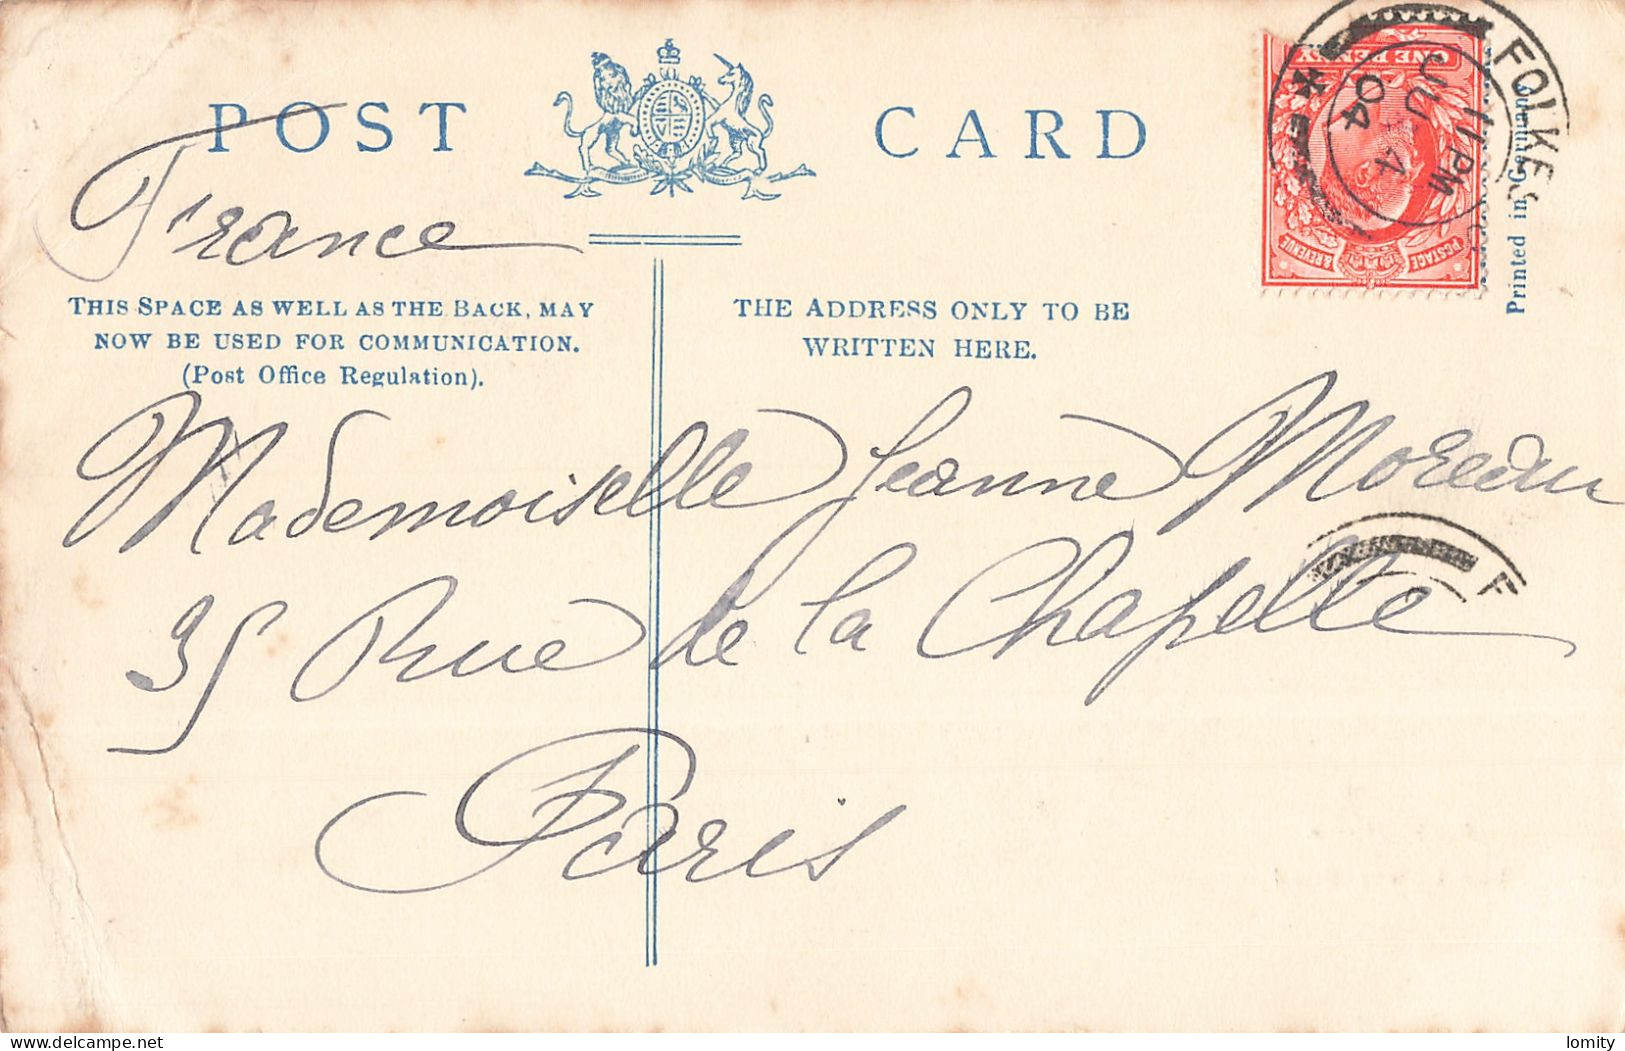 POST CARD
France
THIS SPACE AS WELL AS THE BACK, MAY
NOW BE USED FOR COMMUNICATION.
(Post Office Regulation).
THE ADDRESS ONLY TO BE
WRITTEN HERE.
ONE PENNY
POSTAGE & REVENUE
FOLKES
11 PM
JU 4
04
Printed in Germany
Mademoiselle Jeanne Moreau
35 Rue de la Chapelle
Paris
F
delcampe.net
lomity